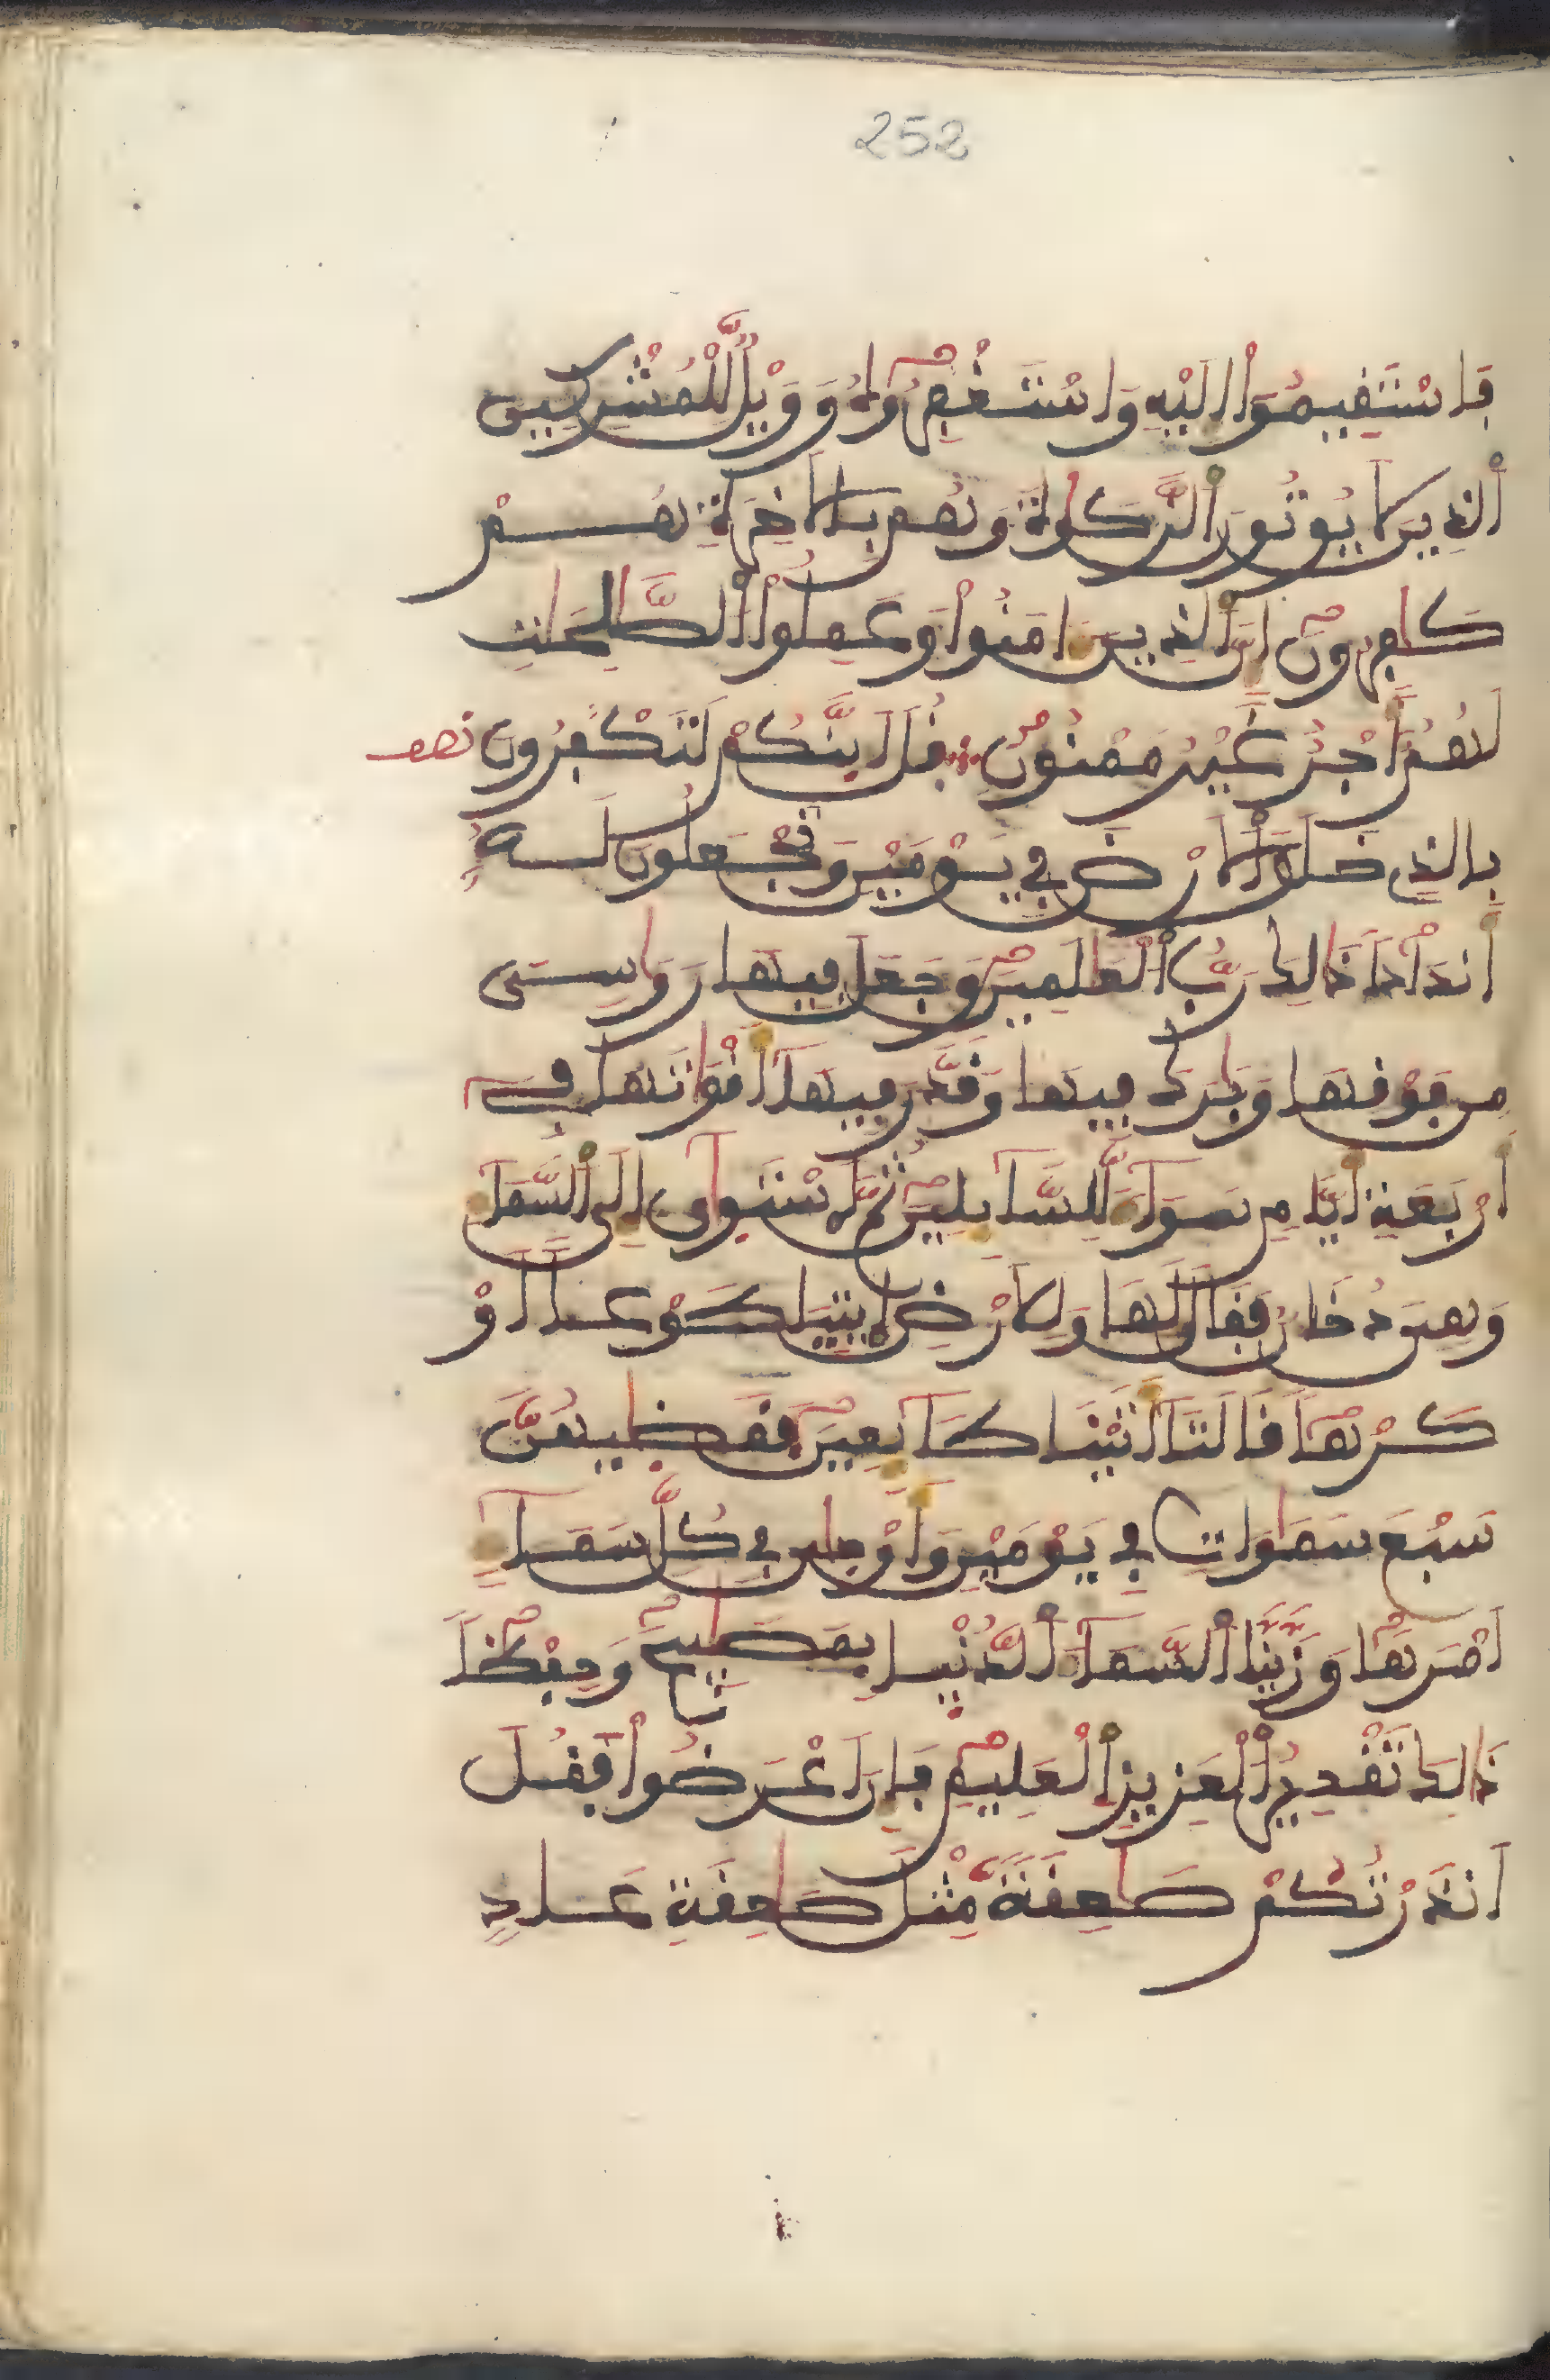 252
فَاسْتَقِيمُوا إِلَيْهِ وَاسْتَغْفِرُوهُ وَوَيْلٌ لِّلْمُشْرِكِينَ
الذِينَ لَا يُوتُونَ الزَّكَوٰةَ وَهُم بِالَاخِرَةِ هُمْ
كَٰفِرُونَ إِنَّ الذِينَ ءَامَنُوا وَعَمِلُوا الصَّٰلِحَٰتِ
لَهُمُ أَجْرٌ غَيْرُ مَمْنُونٍ قُلَ ايِنَّكُمْ لَتَكْفُرُونَ نصف
بِالذِي خَلَقَ الَارْضَ فِي يَوْمَيْنِ وَتَجْعَلُونَ لَهُ
أَندَاداً ذَٰلِكَ رَبُّ الْعَٰلَمِينَ وَجَعَلَ فِيهَا رَوَٰسِيَ
مِن فَوْقِهَا وَبَٰرَكَ فِيهَا وَقَدَّرَ فِيهَا أَقْوَٰتَهَا فِي
أَرْبَعَةِ أَيَّامٍ سَوَآءً لِّلسَّآئِلِينَ ثُمَّ اسْتَوَىٰ إِلَى السَّمَآءِ
وَهِيَ دُخَانٌ فَقَالَ لَهَا وَلِلَارْضِ إِيتِيَا طَوْعاً اَوْ
كَرْهاً قَالَتَا أَتَيْنَا طَآئِعِينَ فَقَضَىٰهُنَّ
سَبْعَ سَمَٰوَاتٍ فِي يَوْمَيْنِ وَأَوْحَىٰ فِي كُلِّ سَمَآءٍ
أَمْرَهَا وَزَيَّنَّا السَّمَآءَ الدُّنْيَا بِمَصَٰبِيحَ وَحِفْظاً
ذَٰلِكَ تَقْدِيرُ الْعَزِيزِ الْعَلِيمِ فَإِنَ اعْرَضُوا فَقُلَ
انذَرْتُكُمْ صَٰعِقَةً مِّثْلَ صَٰعِقَةِ عَادٍ